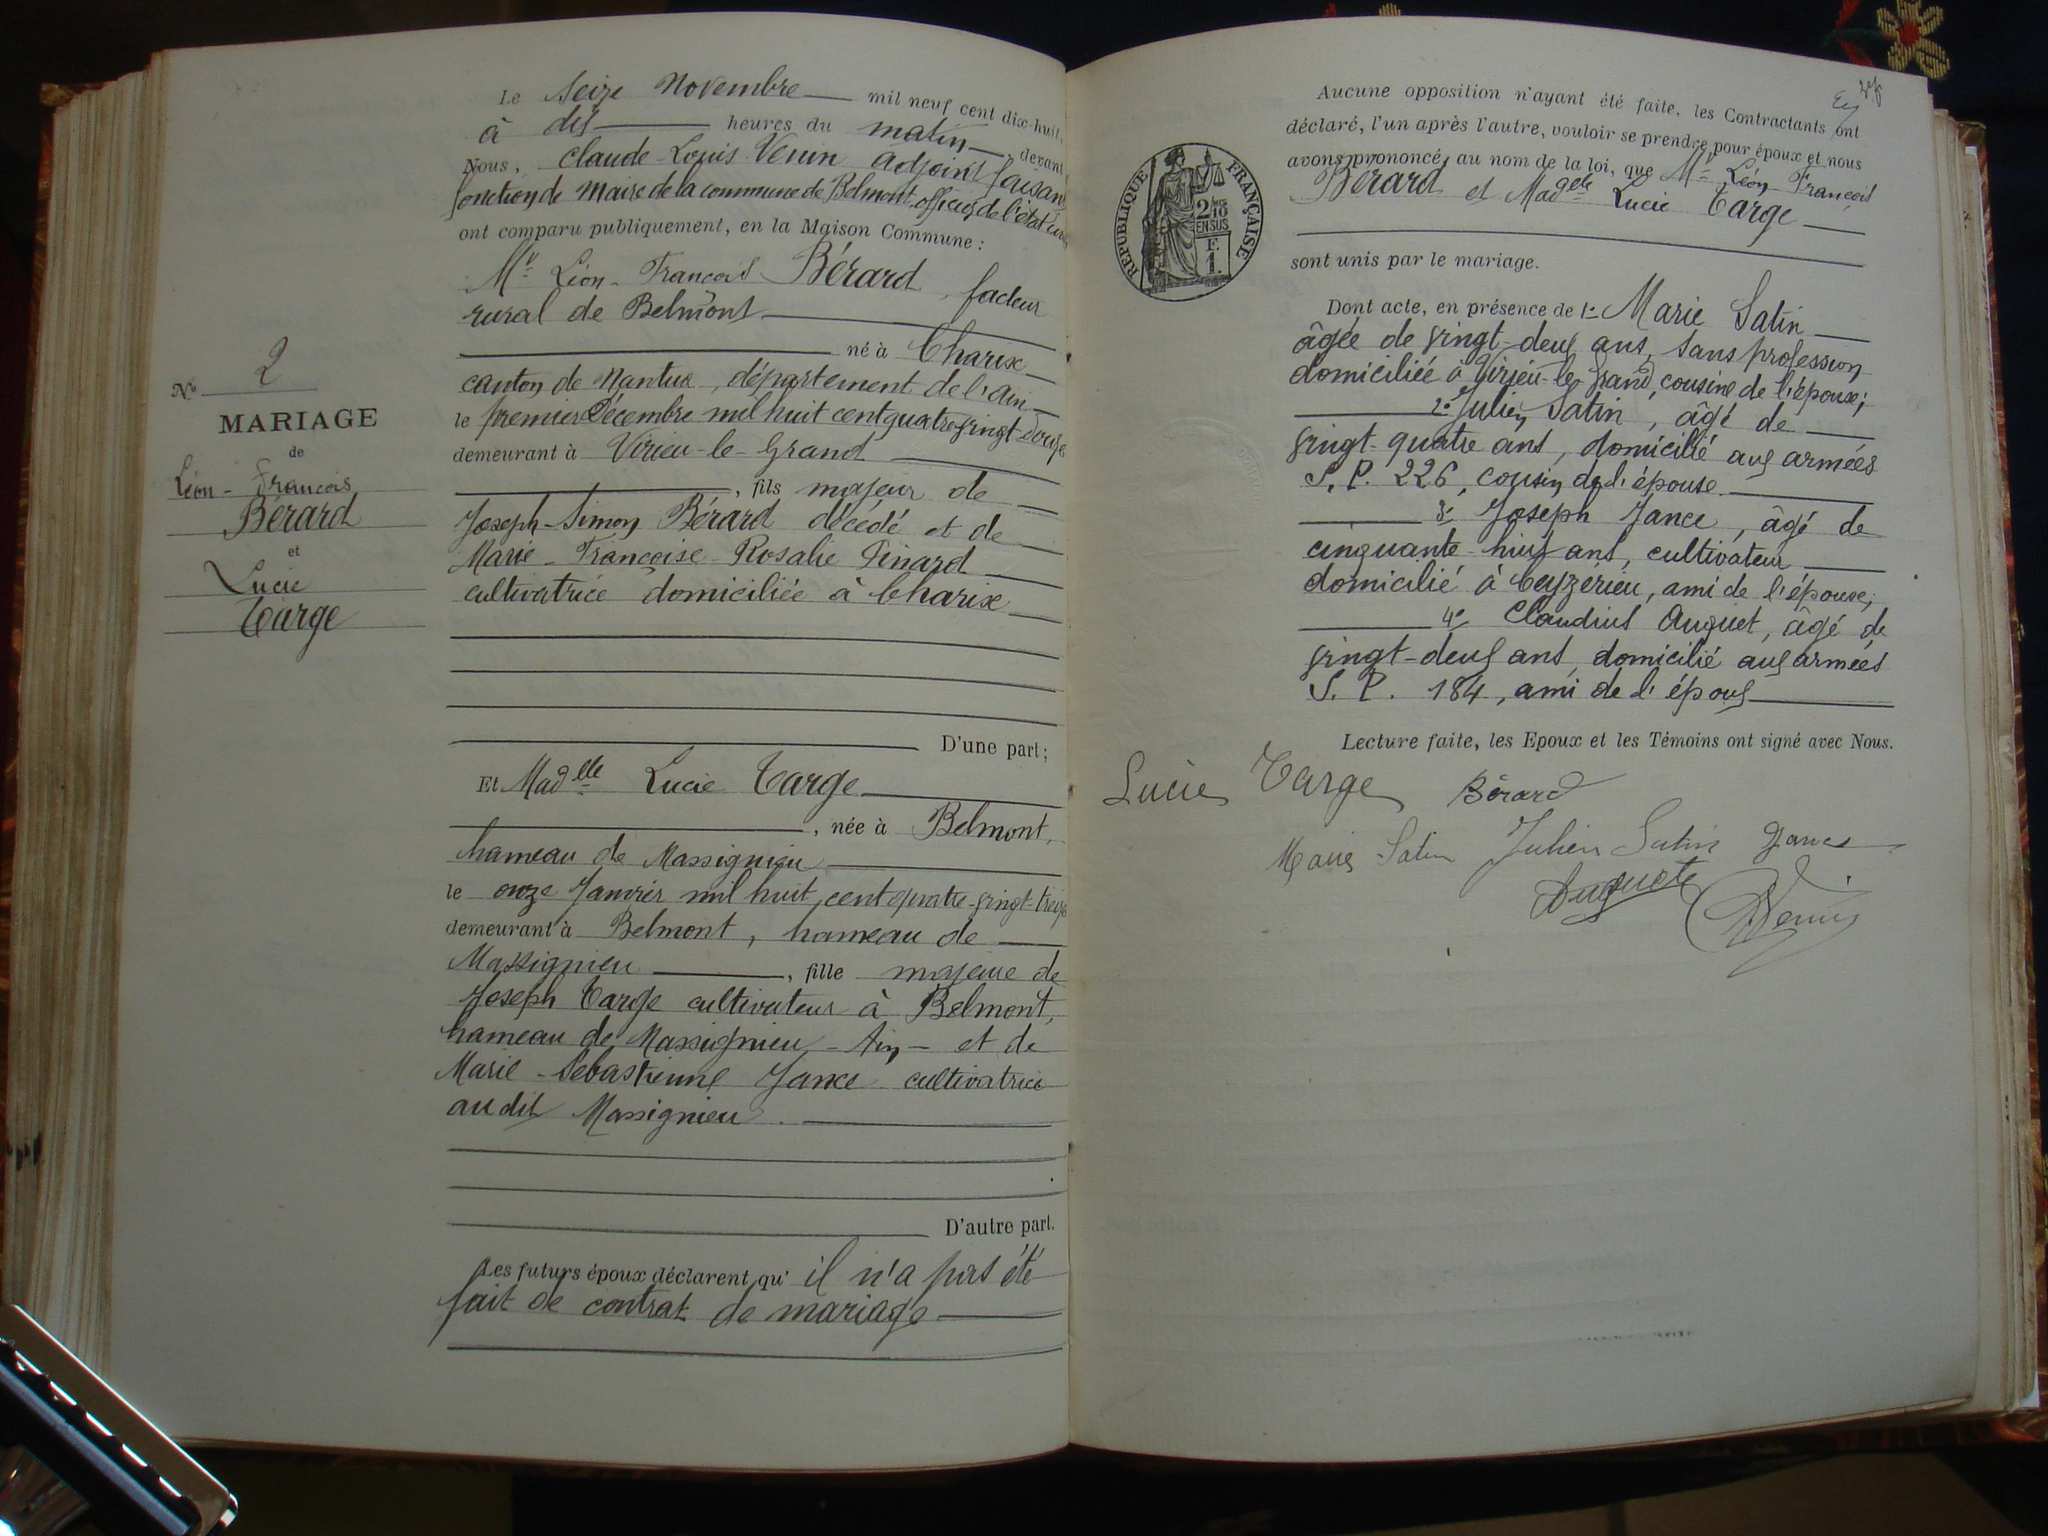 Le seize Novembre mil neuf cent dix-huit,
à dix heures du matin, devant
Nous, Claude-Louis Venin Adjoint faisant
fonction de Maire de la commune de Belmont, officier de l'état civil
ont comparu publiquement, en la Maison Commune :
Mr Léon-François Bérard, facteur
rural de Belmont
né à Charix
canton de Nantua, département de l'Ain
le premier Décembre mil huit cent quatre-vingt-douze
demeurant à Virieu-le-Grand
, fils majeur de
Joseph-Simon Bérard décédé et de
Marie-Françoise-Rosalie Pinard
cultivatrice domiciliée à Charix
D'une part ;
Et Madelle Lucie Targe
, née à Belmont,
hameau de Massignieu
le onze Janvier mil huit cent quatre-vingt-treize
demeurant à Belmont, hameau de
Massignieu, fille majeure de
Joseph Targe cultivateur à Belmont,
hameau de Massignieu - Ain - et de
Marie-Sébastienne Jance cultivatrice
audit Massignieu.
D'autre part.
Les futurs époux déclarent qu'il n'a pas été
fait de contrat de mariage
No 2
MARIAGE
de
Léon-François
Bérard
et
Lucie
Targe
Aucune opposition n'ayant été faite, les Contractants ont
déclaré, l'un après l'autre, vouloir se prendre pour époux et nous
avons prononcé, au nom de la loi, que Mr Léon-François
Bérard et Madelle Lucie Targe
sont unis par le mariage.
RÉPUBLIQUE FRANÇAISE
2/10
EN SUS
F.
1.
Dont acte, en présence de 1° Marie Satin
âgée de vingt-deux ans, sans profession
domiciliée à Virieu-le-Grand, cousine de l'épouse ;
2° Julien Satin, âgé de
vingt-quatre ans, domicilié aux armées
S. P. 226, cousin de l'épouse
3° Joseph Jance, âgé de
cinquante-huit ans, cultivateur
domicilié à Ceyzerieu, ami de l'épouse ;
4° Claudius Auguet, âgé de
vingt-deux ans, domicilié aux armées
S. P. 184, ami de l'époux
Lecture faite, les Epoux et les Témoins ont signé avec Nous.
Lucie Targe Bérard
Marie Satin Julien Satin Jance
Venin